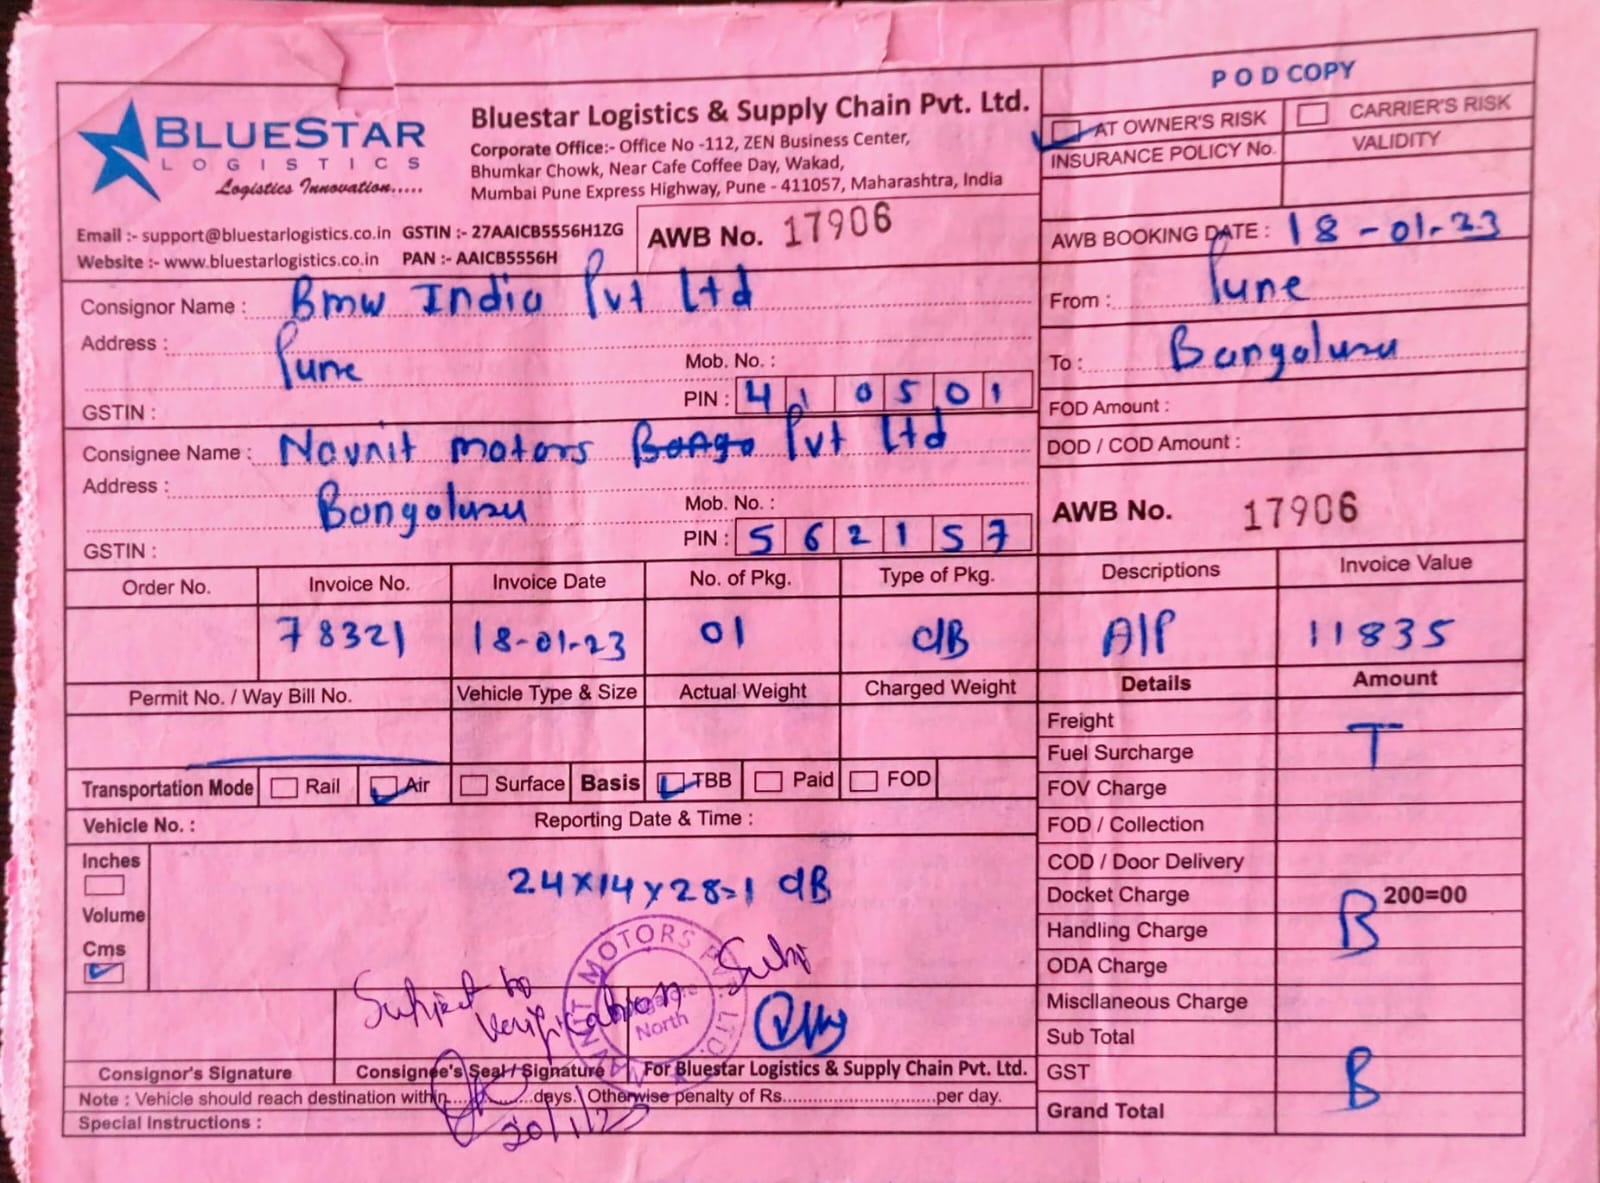 POD COPY
BLUESTAR
LOGISTICS
Logistics Innovation.....
Bluestar Logistics & Supply Chain Pvt. Ltd.
Corporate Office:- Office No -112, ZEN Business Center,
Bhumkar Chowk, Near Cafe Coffee Day, Wakad,
Mumbai Pune Express Highway, Pune - 411057, Maharashtra, India
AT OWNER'S RISK CARRIER'S RISK
INSURANCE POLICY No. VALIDITY
Email :- support@bluestarlogistics.co.in GSTIN :- 27AAICB5556H1ZG
Website :- www.bluestarlogistics.co.in PAN :- AAICB5556H
AWB No. 17906
AWB BOOKING DATE : 18-01-23
Consignor Name : Bmw India Pvt Ltd
From : Pune
Address : Pune
Mob. No. :
To : Bangaluru
PIN : 410501
GSTIN :
FOD Amount :
Consignee Name : Navnit motors Pvt Ltd
DOD / COD Amount :
Address : Bangaluru
Mob. No. :
AWB No. 17906
PIN : 562157
GSTIN :
Order No. Invoice No. Invoice Date No. of Pkg. Type of Pkg. Descriptions Invoice Value
78321 18-01-23 01 dB A/P 11835
Permit No. / Way Bill No. Vehicle Type & Size Actual Weight Charged Weight Details Amount
Freight
T
Fuel Surcharge
Transportation Mode Rail Air Surface Basis TBB Paid FOD
FOV Charge
Vehicle No. : Reporting Date & Time :
FOD / Collection
Inches
COD / Door Delivery
24x14x28=1 dB
Docket Charge 200=00
Volume
B
Handling Charge
Cms
ODA Charge
Subject to
verification
NAVNIT MOTORS PVT. LTD.
North
Miscllaneous Charge
Sub Total
Consignor's Signature Consignee's Seal / Signature For Bluestar Logistics & Supply Chain Pvt. Ltd.
GST
B
Note : Vehicle should reach destination within..............days. Otherwise penalty of Rs..............................per day.
Grand Total
Special Instructions :
20/1/23